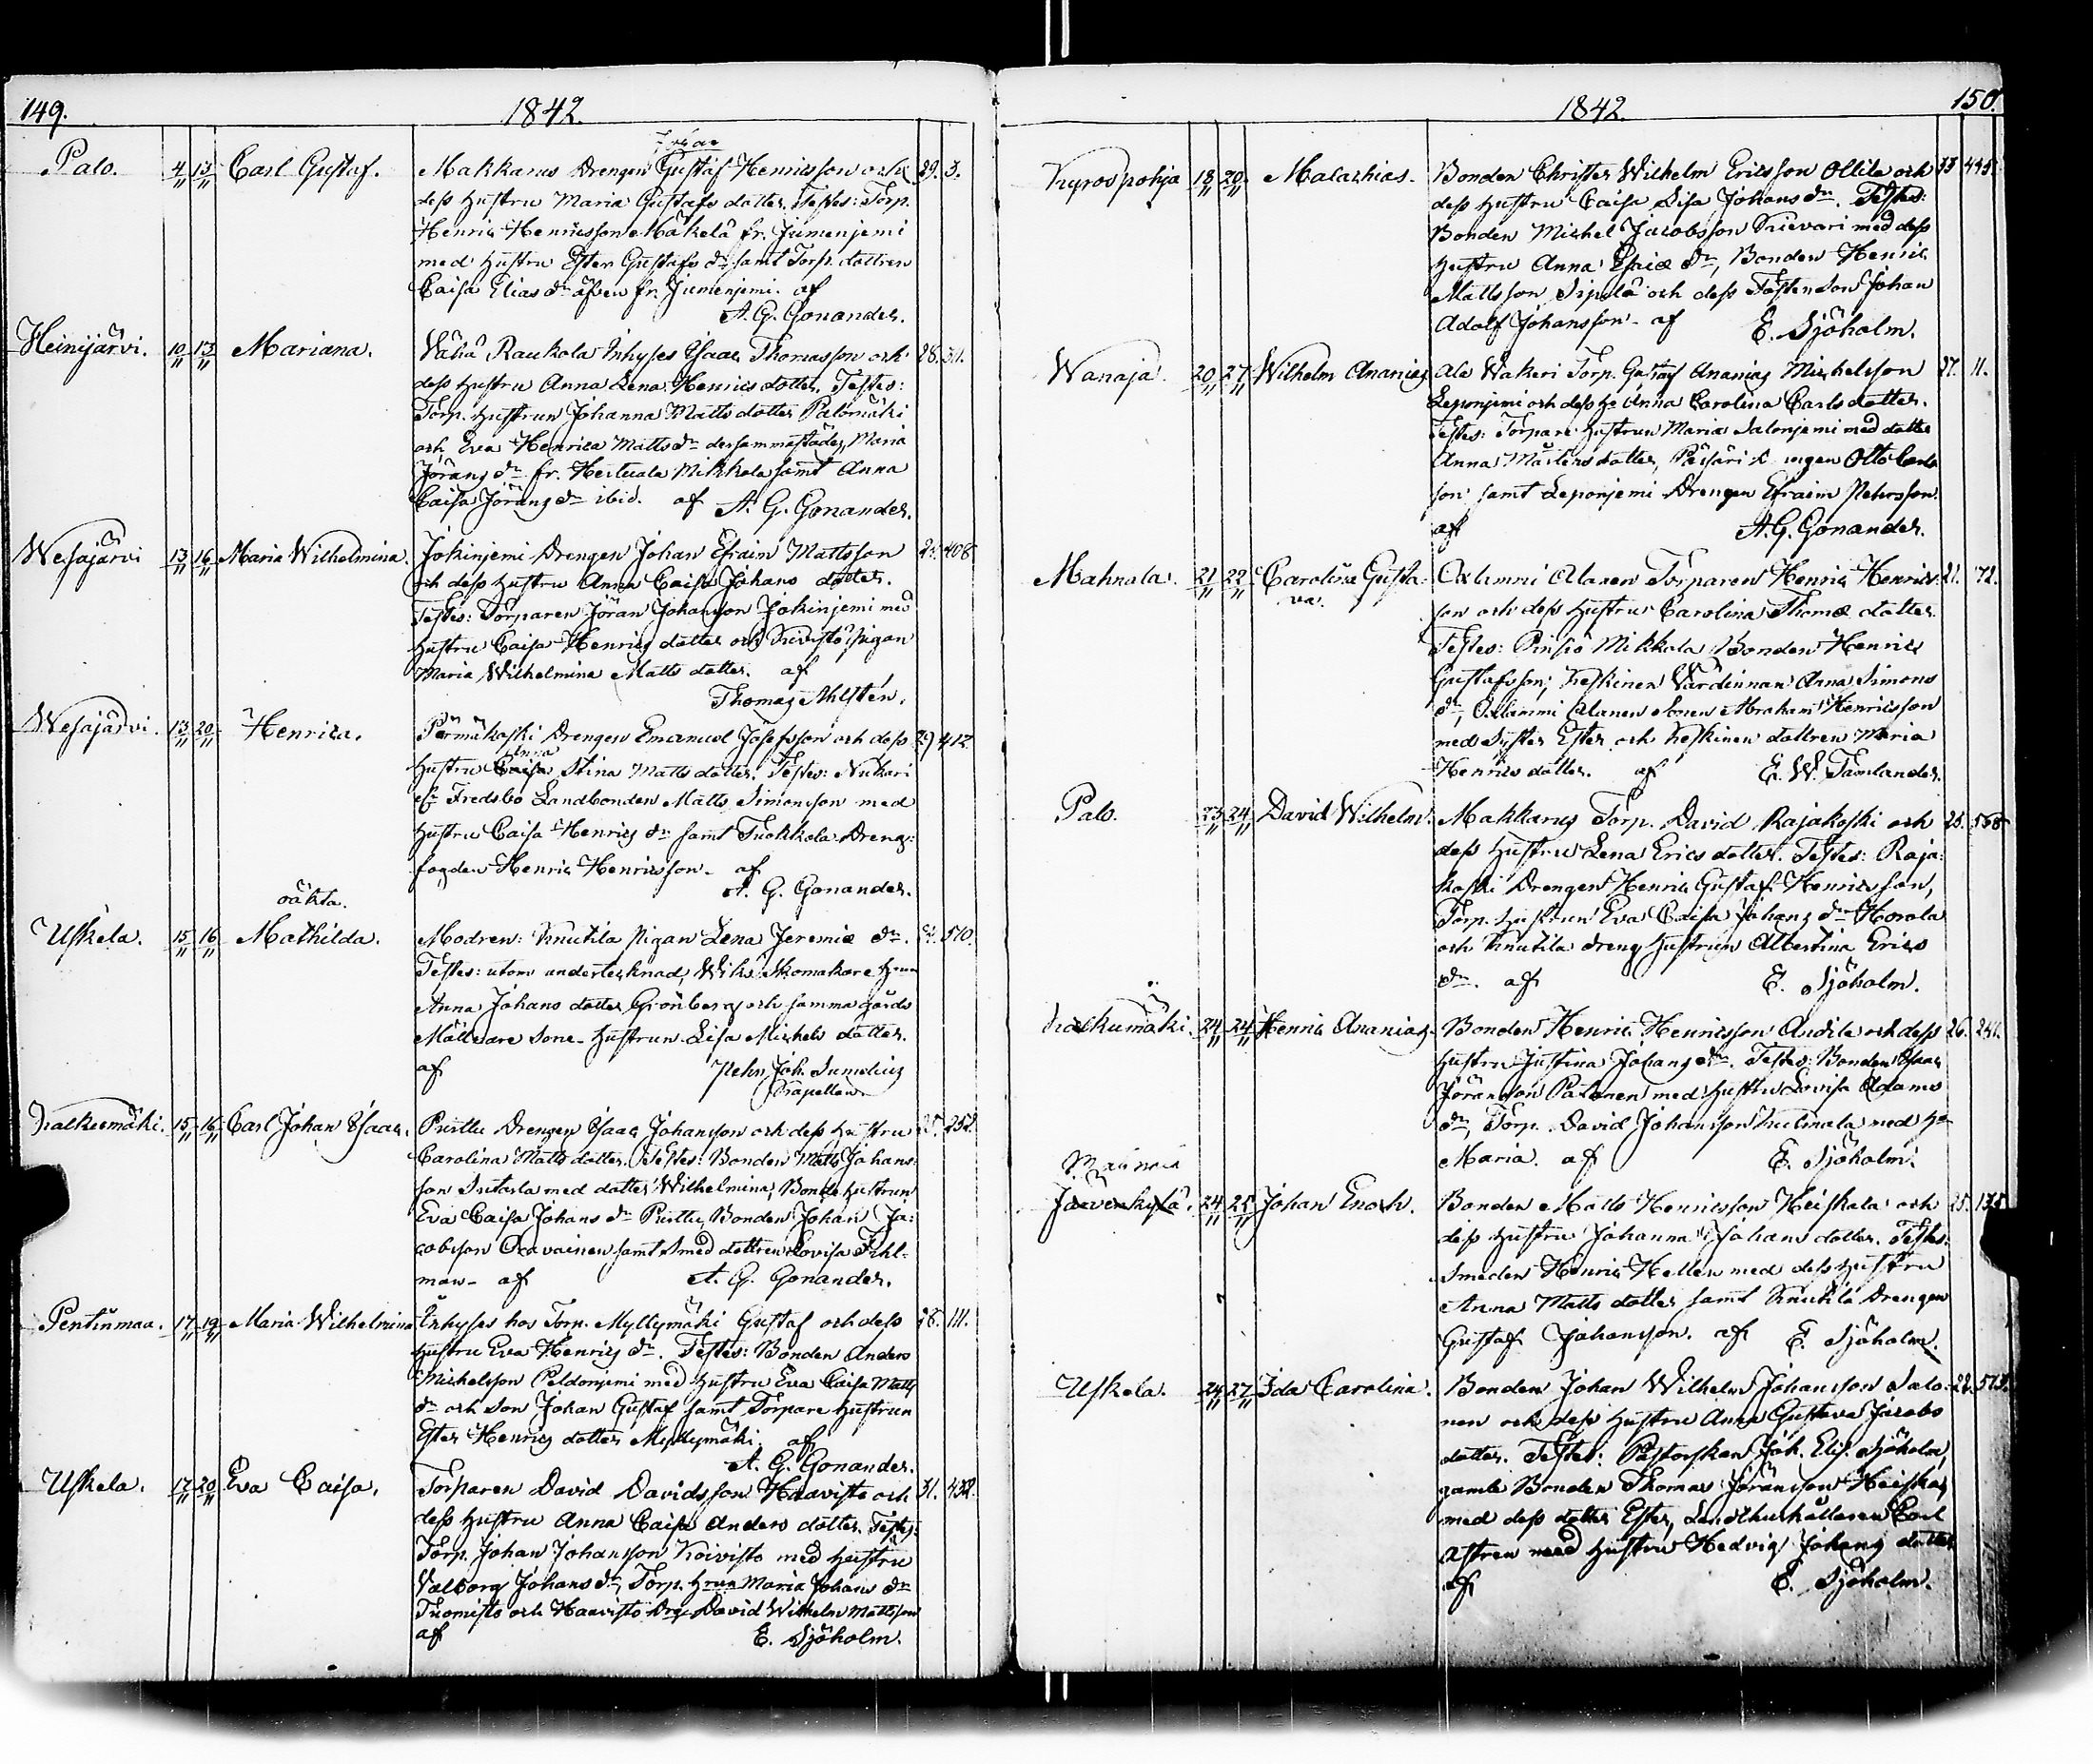 149.
1842.
Jöran
Palo. 4 13 Carl Gustaf. Makkarus Drengen Gustaf Henricsson och 29. 3.
dess hustru Maria Gustafs dotter. Testes: Torp.
Henric Henricsson Mäkelä fr. Jumenjemi
med hustru Ester Gustafs dr samt Torp. dottren
Caisa Elias dr äfven fr. Jumenjemi. af
A. G. Gonander.
Heinijärvi. 10 13 Mariana. Vähä Raukola Inhyses Isaac Thomasson och 28. 31.
dess hustru Anna Lena Henrics dotter. Testes:
Torp. hustrun Johanna Matts dotter Palomäki
och Eva Henrica Matts dr dersammastädes, Maria
Jörans dr fr. Hertuala Mikkola samt Anna
Caisa Jörans dr ibid. af A. G. Gonander.
Wesajärvi 13 16 Maria Wilhelmina. Jokinjemi Drengen Johan Efraim Mattsson 408
och dess hustru Anna Caisa Johans dotter.
Testes: Torparen Jöran Johansson Jokinjemi med
hustru Caisa Henrics dotter och Kivistö pigan
Maria Wilhelmina Matts dotter. af
Thomas Ahlstén.
Wesajärvi. 13 20 Henrica. Pärmäkoski Drengen Emanuel Josefsson och dess 29 412
Anna
hustru Caisa Stina Matts dotter. Testes: Nukari
Fredsbo Landbonden Matts Simonsson med
hustru Caisa Henrics dr samt Tuokkola Dreng:
fogden Henric Henricsson. af
A. G. Gonander.
oäkta.
Uskela. 15 16 Mathilda. Modren: Knutila pigan Lena Jeremiæ dr. 510.
Testes: utom undertecknad, Wiks Skomakare hrun
Anna Johans dotter Grönberg och samma gårds
Mältare Sone hustrun Lisa Michels dotter.
af Joh. Sumelius
Kapellan
Kalkumäki. 15 16 Carl Johan Isaac. Purttu Drengen Isaac Johansson och dess hustru 25. 252.
Carolina Matts dotter. Testes: Bonden Matts Johans:
son Sutarla med dotter Wilhelmina, Bonde hustrun
Eva Caisa Johans dr Purttu, Bonden Johan Ja:
cobsson Oravainen samt Smed dottren Lovisa Fihl-
man. af A. G. Gonander.
Pentinmaa. 17 19 Maria Wilhelmina Inhyses hos Torp. Myllymäki Gustaf och dess 28. 111.
hustru Eva Henrics dr. Testes: Bonden Anders
Michelsson Peldonjemi med hustru Eva Caisa Matts
dr och Son Johan Gustaf samt Torpare hustrun
Ester Henrics dotter Myllymäki. af
A. G. Gonander.
Uskela. 17 20 Eva Caisa. Torparen David Davidsson Haavisto och 31. 432.
dess hustru Anna Caisa Anders dotter. Testes:
Torp. Johan Johansson Koivisto med hustru
Valborg Johans dr, Torp. hrun Maria Johans dr
Tuomisto och Haavisto Drg. David Wilhelm Mattsson
af E. Sjöholm.
1842.
150.
Kyrospohja 18 20 Malachias. Bonden Christer Wilhelm Ericsson Ollila och 33 445.
dess hustru Caisa Lisa Johans dr. Testes:
Bonden Michel Jacobsson Kievari med dess
hustru Anna Esaiæ dr, Bonden Henric
Mattsson Sipilä och dess Fosterson Johan
Adolf Johansson. af E. Sjöholm.
Wanaja. 20 27 Wilhelm Ananias Ala Wakeri Torp. Gustaf Ananias Michelsson 27. 11.
Leponjemi och dess hu Anna Carolina Carls dotter.
Testes: Torpare hustrun Maria Salonjemi med dotter
Anna Mårtens dotter, Otto Carls
son samt Leponjemi Drengen Efraim Pehrsson.
af A. G. Gonander.
Mahnala. 21 22 Carolina Gusta- Oxlammi Alanen Torparen Henric Henrics: 21. 72.
va. son och dess hustru Carolina Thomæ dotter
Testes: Pinsiö Mikkola Bonden Henric
Gustafsson, Keskinen Värdinnan Anna Simons
dr, Oxlammi Alanen Sonen Abraham Henricsson
med Syster Ester och Keskinen dottren Maria
Henrics dotter. af E. W. Tamlander.
Palo. 23 24 David Wilhelm. Makkarus Torp. David Rajakoski och 25. 568
dess hustru Lena Erics dotter. Testes: Raja:
koski Drengen Henric Gustaf Henricsson,
Torp. hustrun Eva Caisa Johans dr Horola
och Knutila dreng hustrun Albertina Erics
dr. af E. Sjöholm.
Kalkumäki. 24 24 Henric Ananias. Bonden Henric Henricsson Anttila och dess 26. 241.
hustru Justina Johans dr. Testes: Bonden Isaac
Jöransson Palanen med hustru Lovisa Adams
dr, Torp. David Johansson Huhmala med hu
Maria. af E. Sjöholm.
Mahnala
Järvenkylä. 24 25 Johan Enoch. Bonden Matts Henricsson Heiskala och 25. 135
dess hustru Johanna Johans dotter. Testes:
Smeden Henric Hellen med dess hustru
Anna Matts dotter samt Knutila Drengen
Gustaf Johansson. af E. Sjöholm.
Uskela. 24 27 Ida Carolina. Bonden Johan Wilhelm Johansson Salo- 22. 513.
nen och dess hustru Anna Gustava Jacobs
dotter. Testes: Pastorskan Joh. Elis. Sjöholm,
gamle Bonden Thomas Jöransson Heiska,
med dess dotter Ester, Landthushållaren Carl
Astren med hustru Hedvig Johans dotter
af E. Sjöholm.